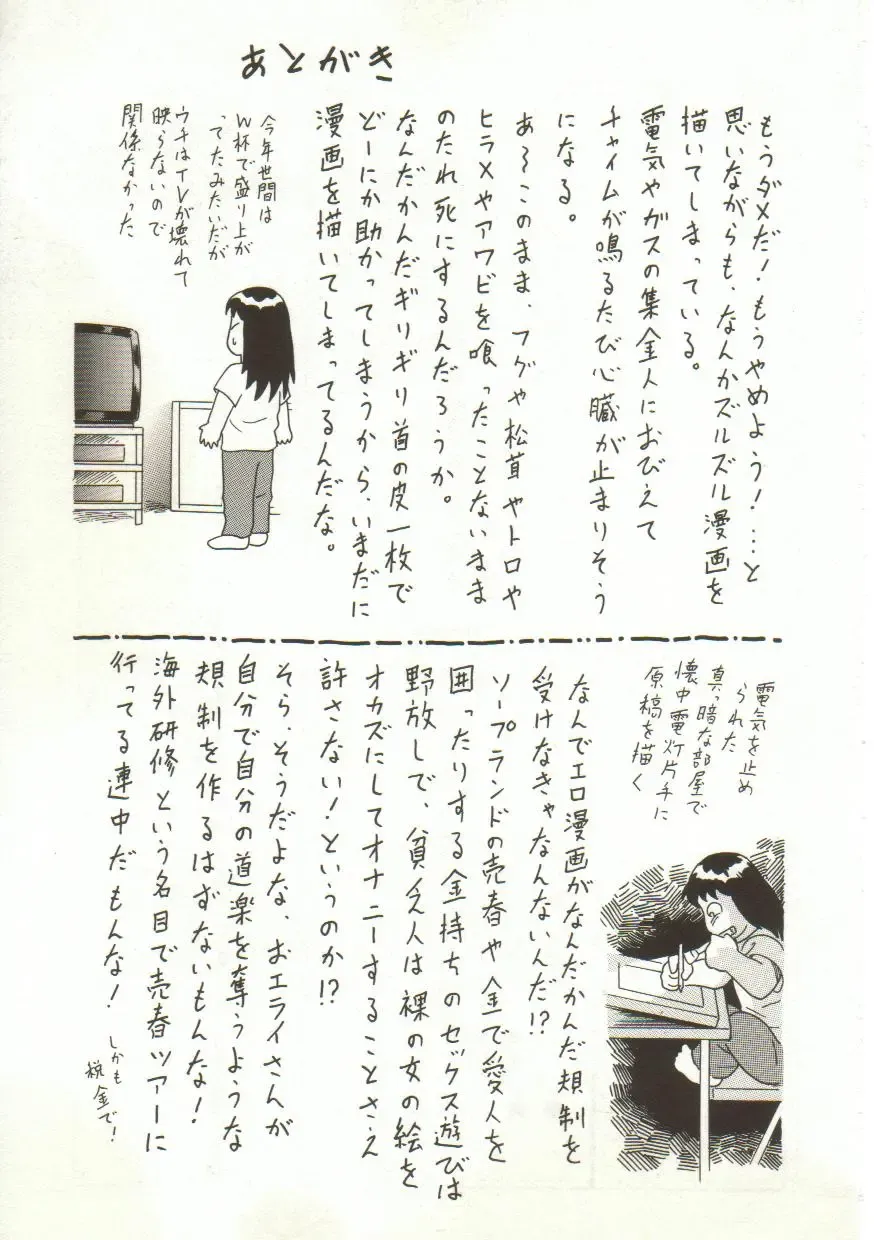 あとがき
もうダメだ！もうやめよう！…と
思いながらも、なんかズルズル漫画を
描いてしまっている。
電気やガスの集金人におびえて
チャイムが鳴るたび心臓が止まりそう
になる。
あ～このまま、フグや松茸やトロや
ヒラメやアワビを喰ったことないまま
のたれ死にするんだろうか。
なんだかんだギリギリ首の皮一枚で
どーにか助かってしまうから、いまだに
漫画を描いてしまってるんだな。
今年世間は
W杯で盛り上が
ってたみたいだが
ウチはTVが壊れて
映らないので
関係なかった
電気を止め
られた
真っ暗な部屋で
懐中電灯片手に
原稿を描く
なんでエロ漫画がなんだかんだ規制を
受けなきゃなんないんだ!?
ソープランドの売春や金で愛人を
囲ったりする金持ちのセックス遊びは
野放しで、貧乏人は裸の女の絵を
オカズにしてオナニーすることさえ
許さない！というのか!?
そら、そうだよな、おエライさんが
自分で自分の道楽を奪うような
規制を作るはずないもんな！
海外研修という名目で売春ツアーに
行ってる連中だもんな！
しかも
税金で！